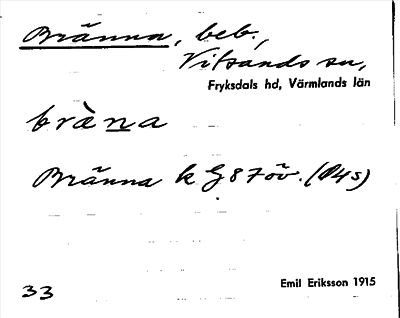 Bränna, beb.,
Vitsands sn,
Fryksdals hd, Värmlands län
bràna
Bränna k G 87 öv. (P4s)
33
Emil Eriksson 1915